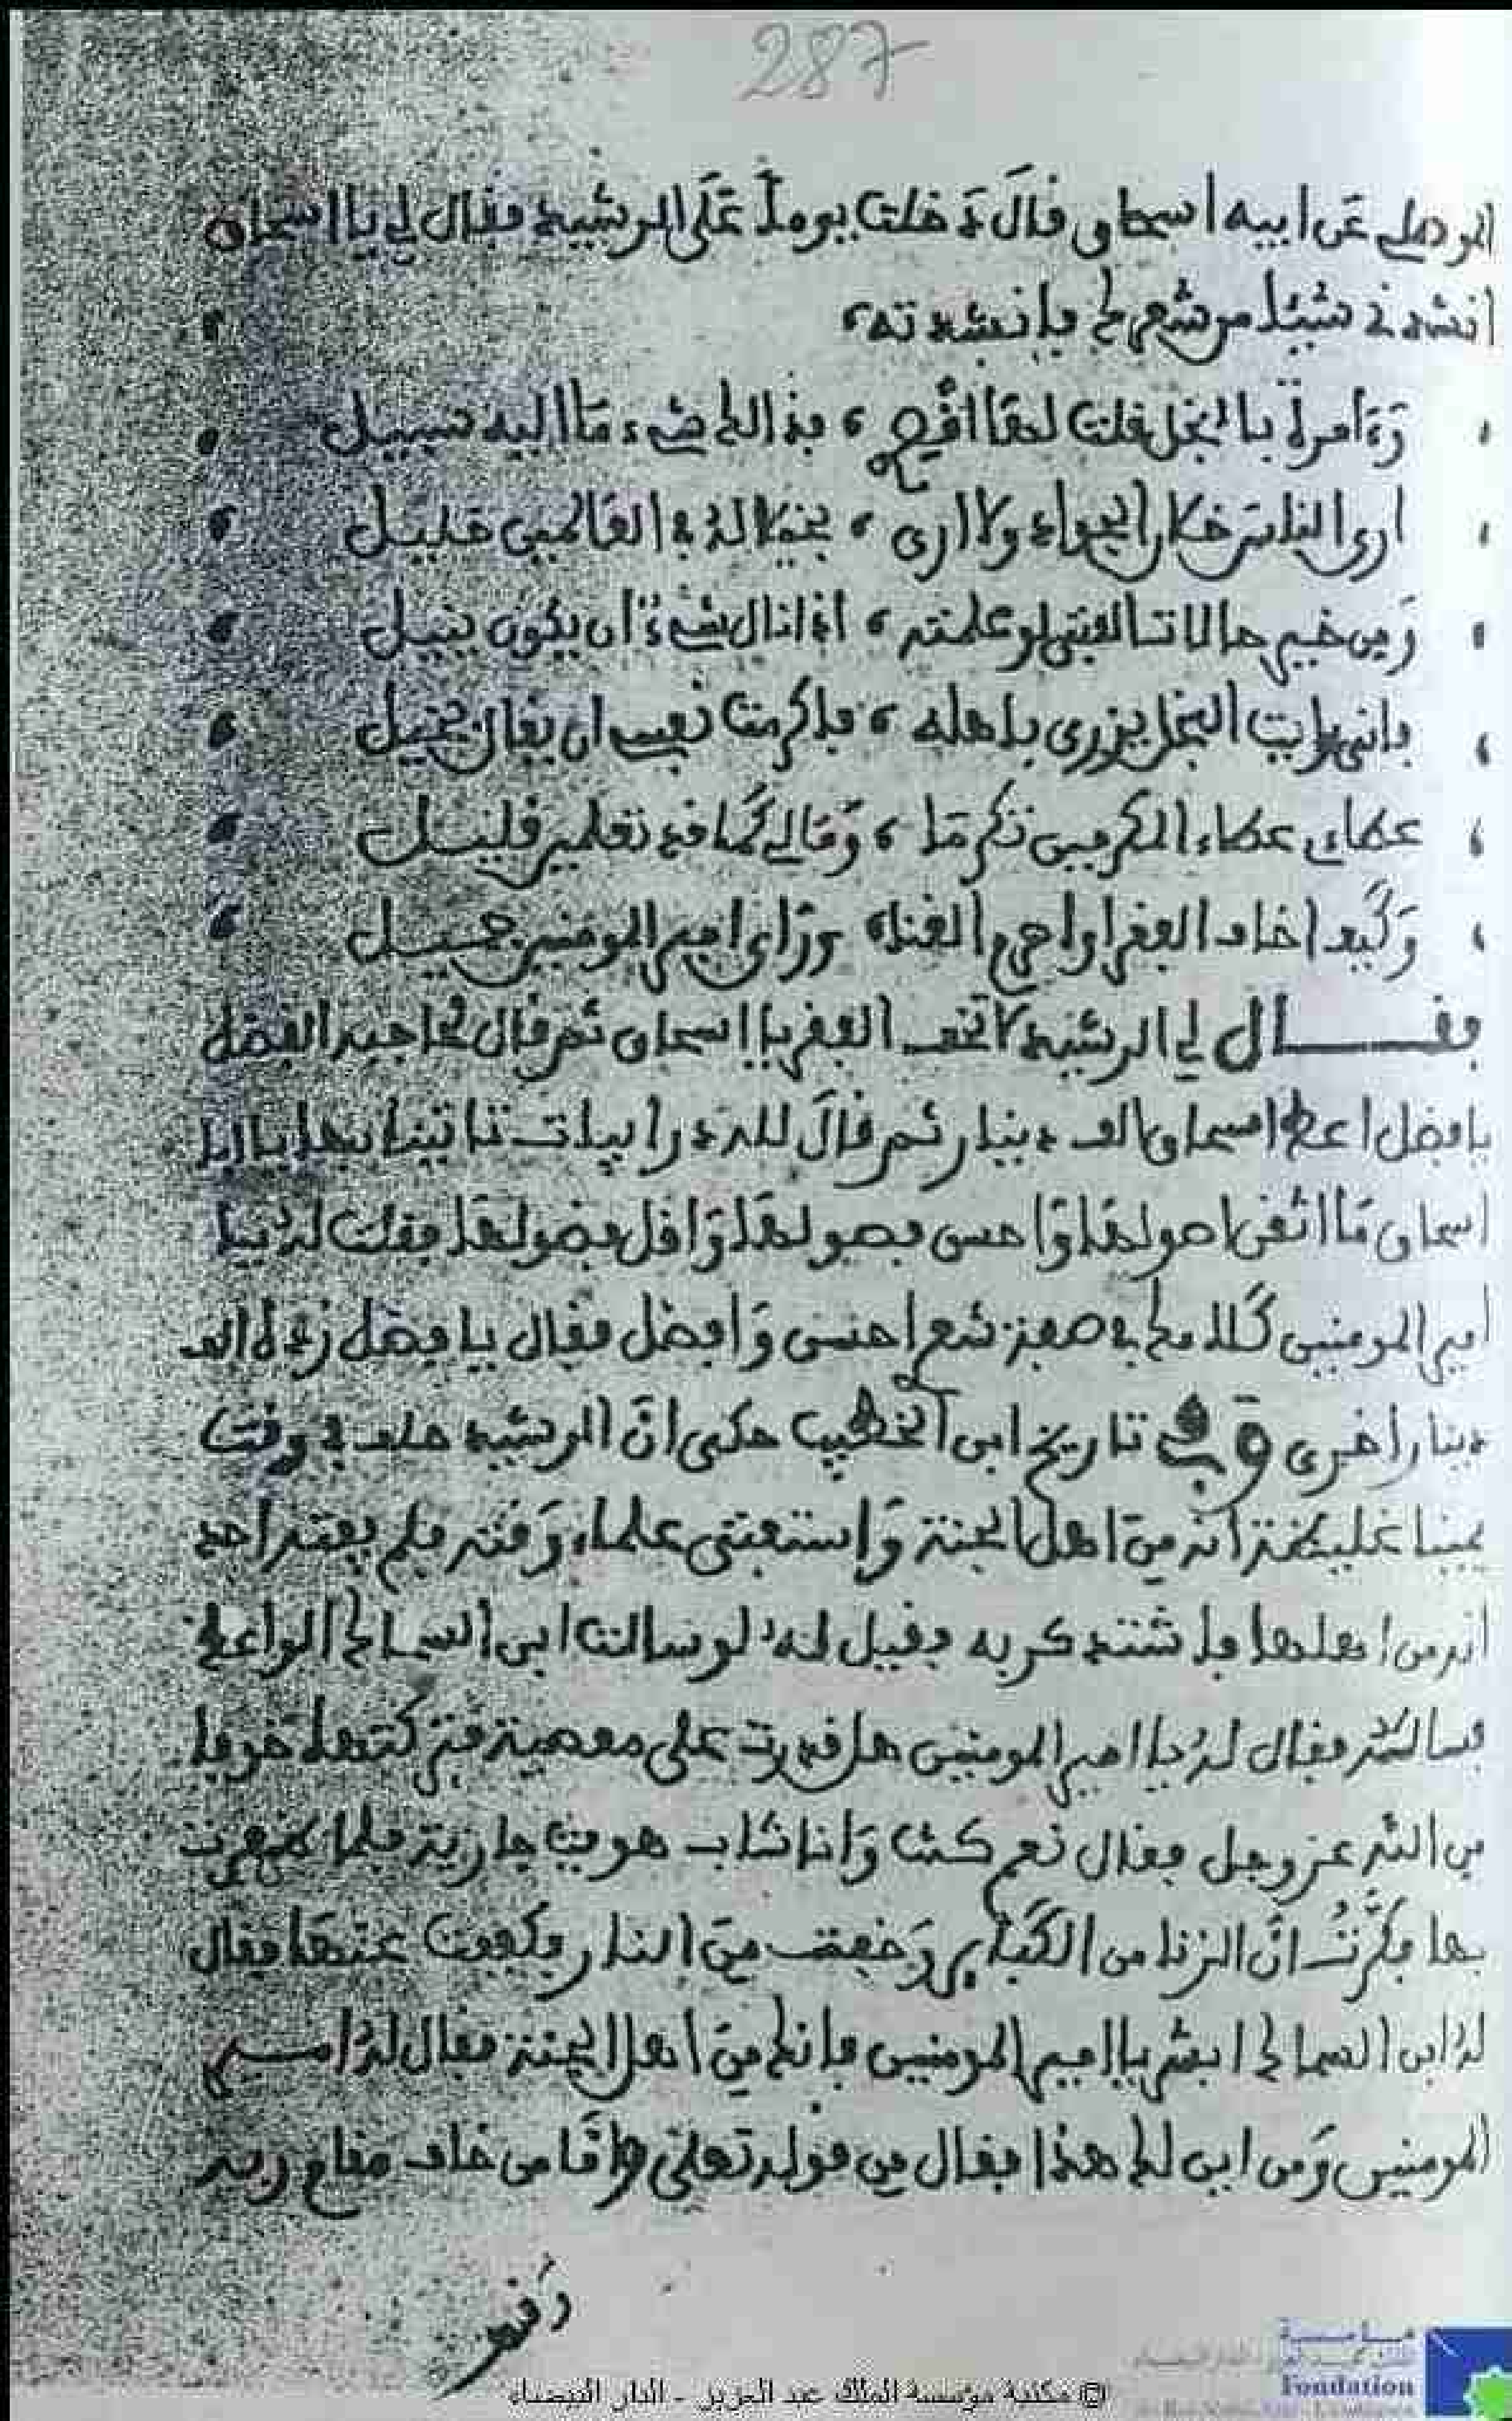 287
الموصلي عن ابيه اسحاق قال دخلت يوما على الرشيد فقال لي يا اسحاق
انشدني شيئا من شعرك فانشدته
وءامرة بالبخل قلت لها اقصري ، فذالك شيء ما اليه سبيل
ارى الناس خلان الجواد ولا ارى ، بخيلا له في العالمين خليل
ومن خير حالات الفتى لو علمته ، اذا نال شيءا ان يكون ينيل
فاني رايت البخل يزري باهله ، فاكرمت نفسي ان يقال بخيل
عطاءي عطاء المكرمين تكرما ، ومالي كما قد تعلمين قليل
وكيف اخاف الفقر او احرم الغنا ، وراي امير المومنين جميل
فقال لي الرشيد لا تخف الفقر يا اسحاق ثم قال لحاجبه الفضل
يا فضل اعط اسحاق الف دينار ثم قال لله در ابيات تاتينا بها يا ابا
اسحاق ما اتقن اصولها واحسن فصولها واقل فضولها فقلت له يا
امير المومنين كلامك في صفة شعري احسن وافضل فقال يا فضل زده الف
دينار اخرى وفي تاريخ ابن الخطيب حكي ان الرشيد حلف في وقت
يمينا غليظة انه من اهل الجنة واستفتى علماء وقته فلم يفته احد
انه من اهلها فاشتد كربه فقيل له لو سالت ابن السماك الواعظ
فساله فقال له يا امير المومنين هل قدرت على معصية فتركتها خوفا
من الله عز وجل فقال نعم كنت وانا شاب هويت جارية فلما ظفرت
بها فكرت ان الزنا من الكباير وخفت من النار وكففت عنها فقال
له ابن السماك ابشر يا امير المومنين فانك من اهل الجنة فقال له امير
المومنين ومن اين لك هذا فقال من قوله تعلى واما من خاف مقام ربه
ونهى
مؤسسة
Foundation
© مكتبة مؤسسة الملك عبد العزيز - الدار البيضاء